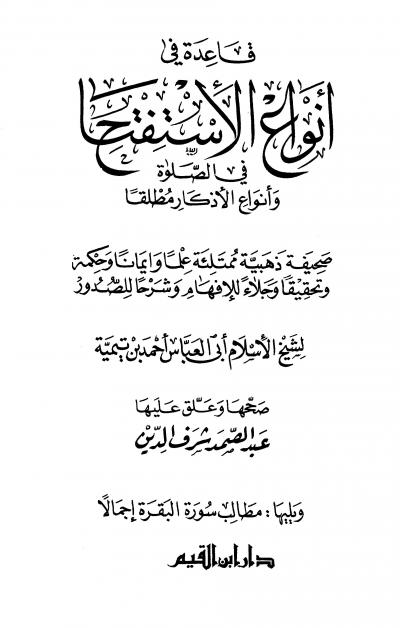 قاعدة في
أنواع الاستفتاح
في الصلاة
وأنواع الأذكار مطلقا
صحيفة ذهبية ممتلئة علمًا وإيمانًا وحكمة
وتحقيقًا وجلاءً للإفهام وشرحًا للصدور
لشيخ الإسلام أبي العباس أحمد بن تيمية
صححها وعلق عليها
عبد الصمد شرف الدين
ويليها: مطالب سورة البقرة إجمالًا
دار ابن القيم